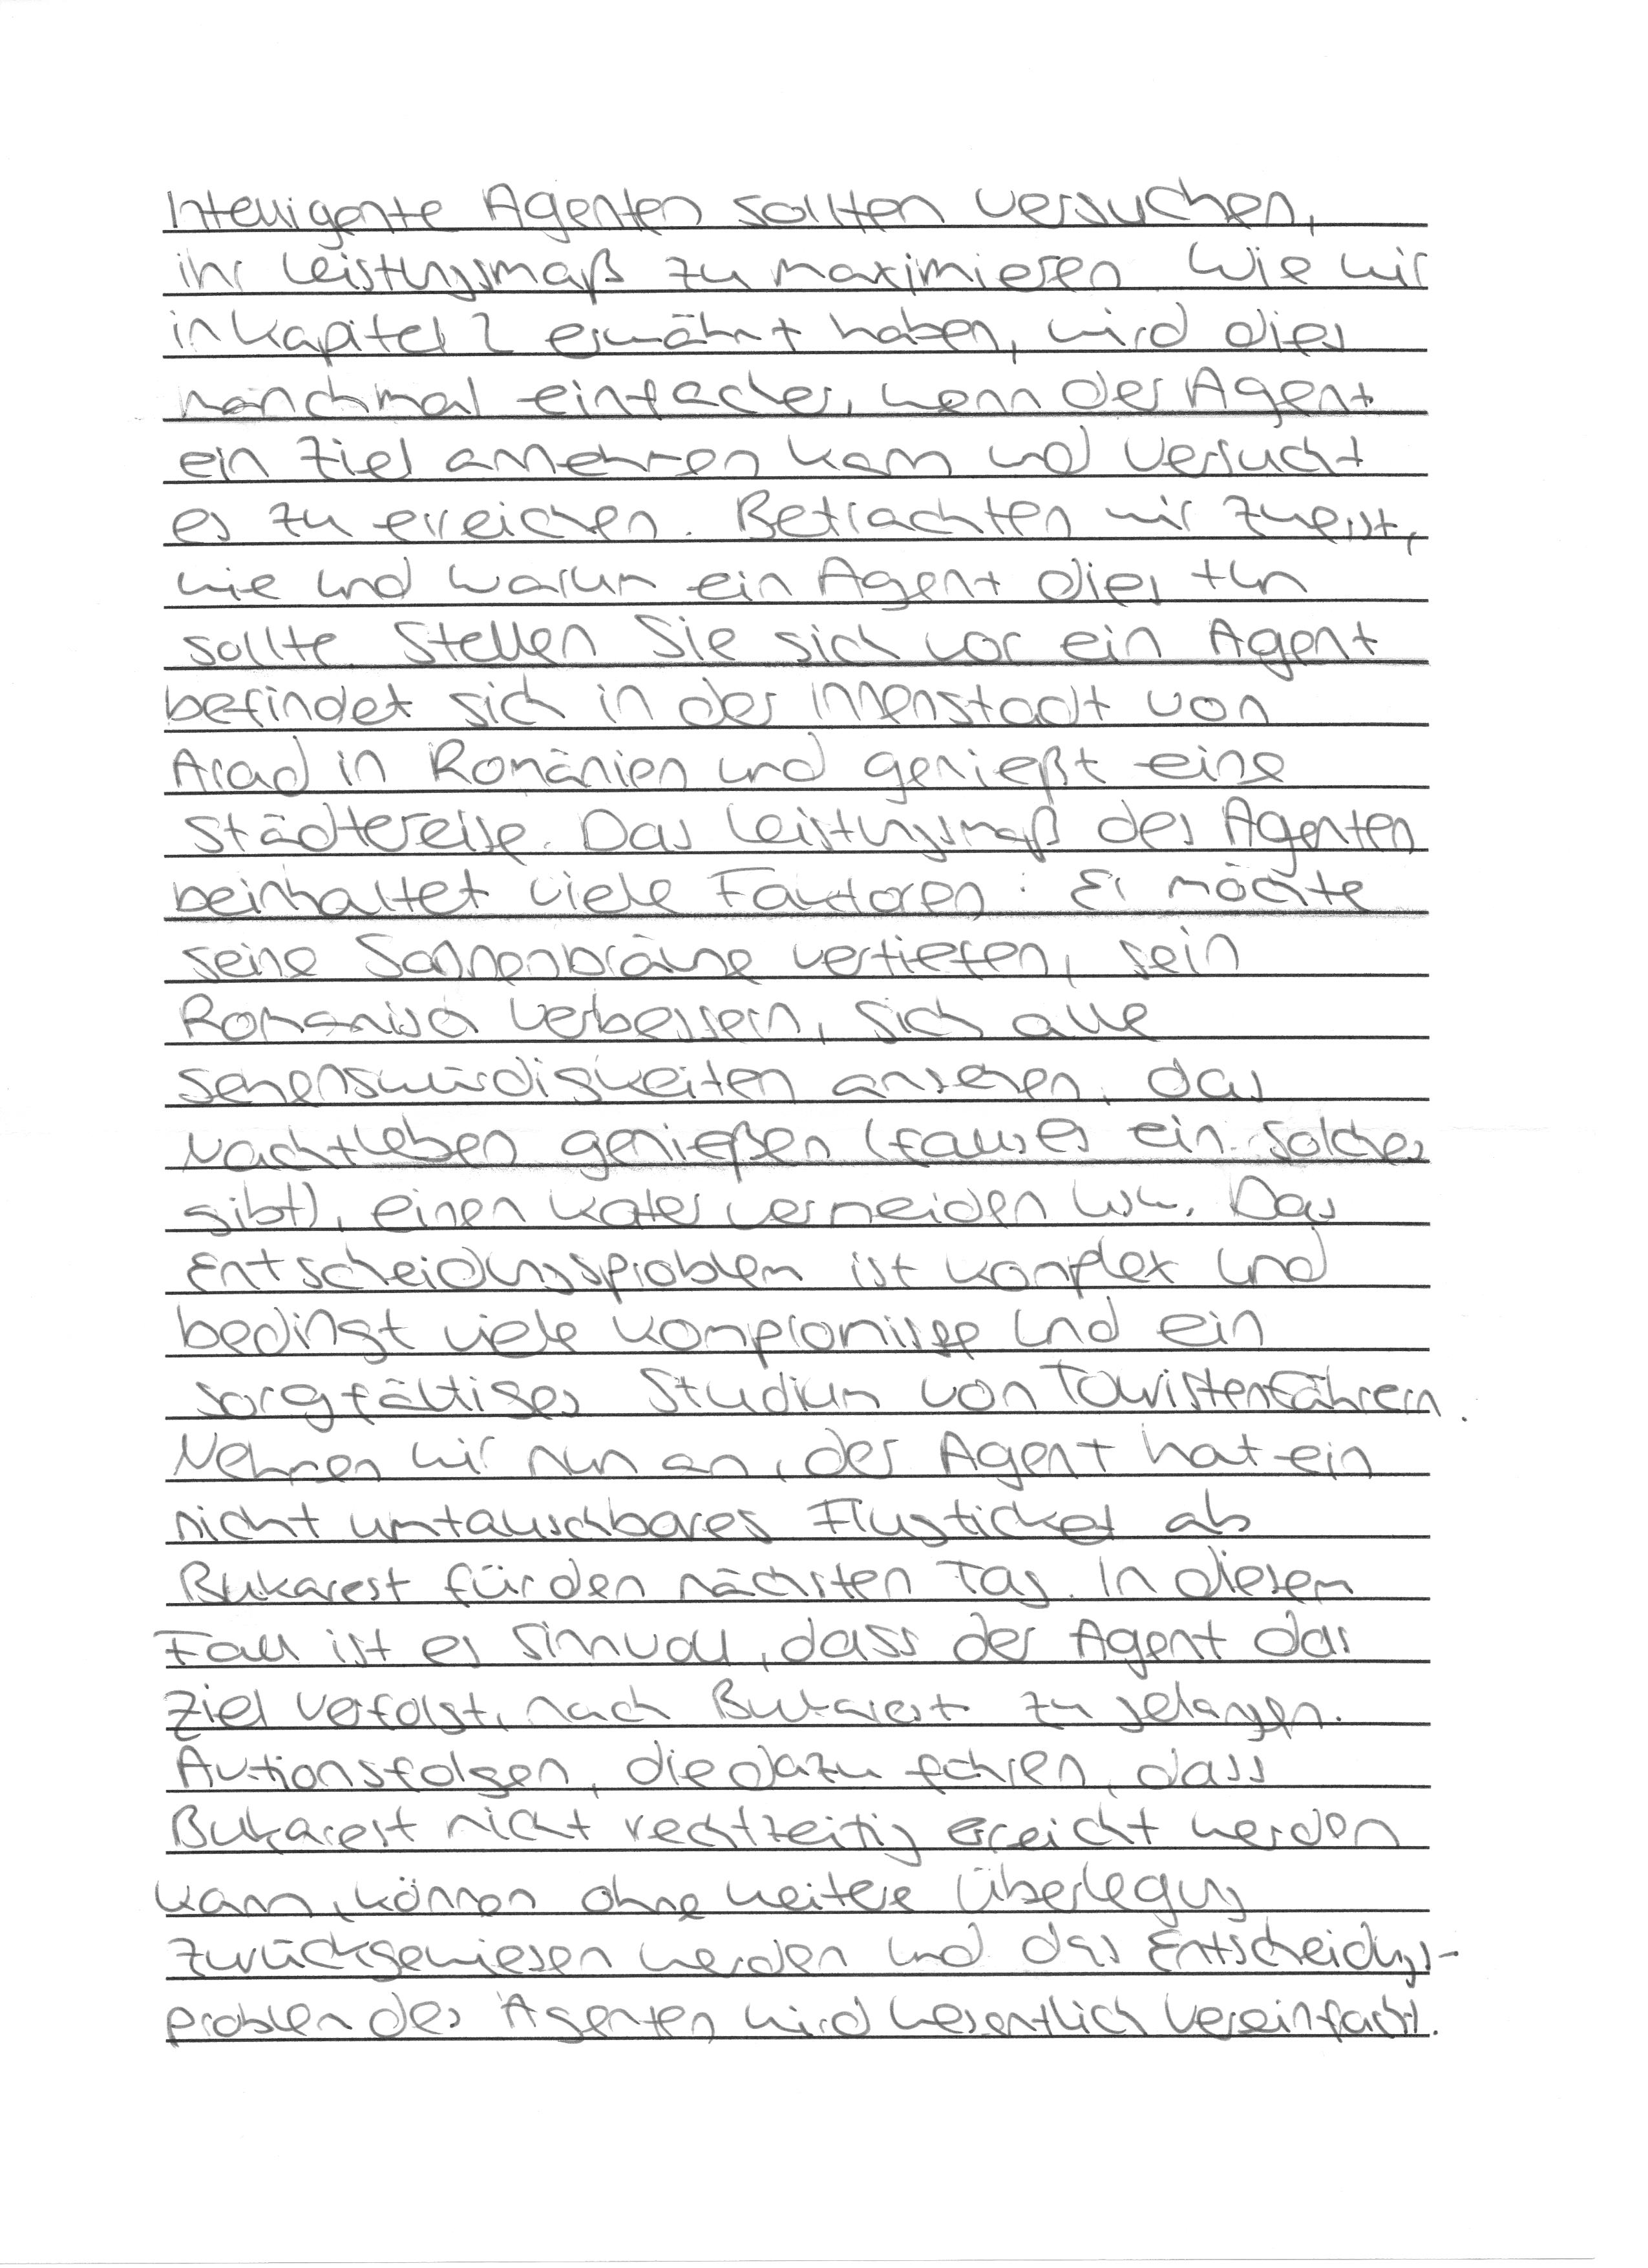 Intelligente Agenten sollten versuchen,
ihr Leistungsmaß zu maximieren. Wie wir
in Kapitel 2 erwähnt haben, wird dies
manchmal einfacher, wenn der Agent
ein Ziel annehmen kann und versucht
es zu erreichen. Betrachten wir zuerst,
wie und warum ein Agent dies tun
sollte. Stellen Sie sich vor ein Agent
befindet sich in der Innenstadt von
Arad in Romänien und genießt eine
Städtereise. Das Leistungsmaß des Agenten
beinhaltet viele Faktoren: Er möchte
seine Sonnenbräune vertiefen, sein
Romanisch verbessern, sich alle
Sehenswürdigkeiten ansehen, das
Nachtleben genießen (falls es ein solches
gibt), einen Kater vermeiden usw. Das
Entscheidungsproblem ist komplex und
bedingt viele Kompromisse und ein
sorgfältiges Studium von Touristenführern.
Nehmen wir nun an, der Agent hat ein
nicht umtauschbares Flugticket ab
Bukarest für den nächsten Tag. In diesem
Fall ist es sinnvoll, dass der Agent das
Ziel verfolgt, nach Bukarest zu gelangen.
Aktionsfolgen, die dazu führen, dass
Bukarest nicht rechtzeitig erreicht werden
kann, können ohne weitere Überlegung
zurückgewiesen werden und das Entscheidungs-
problem des Agenten wird wesentlich vereinfacht.